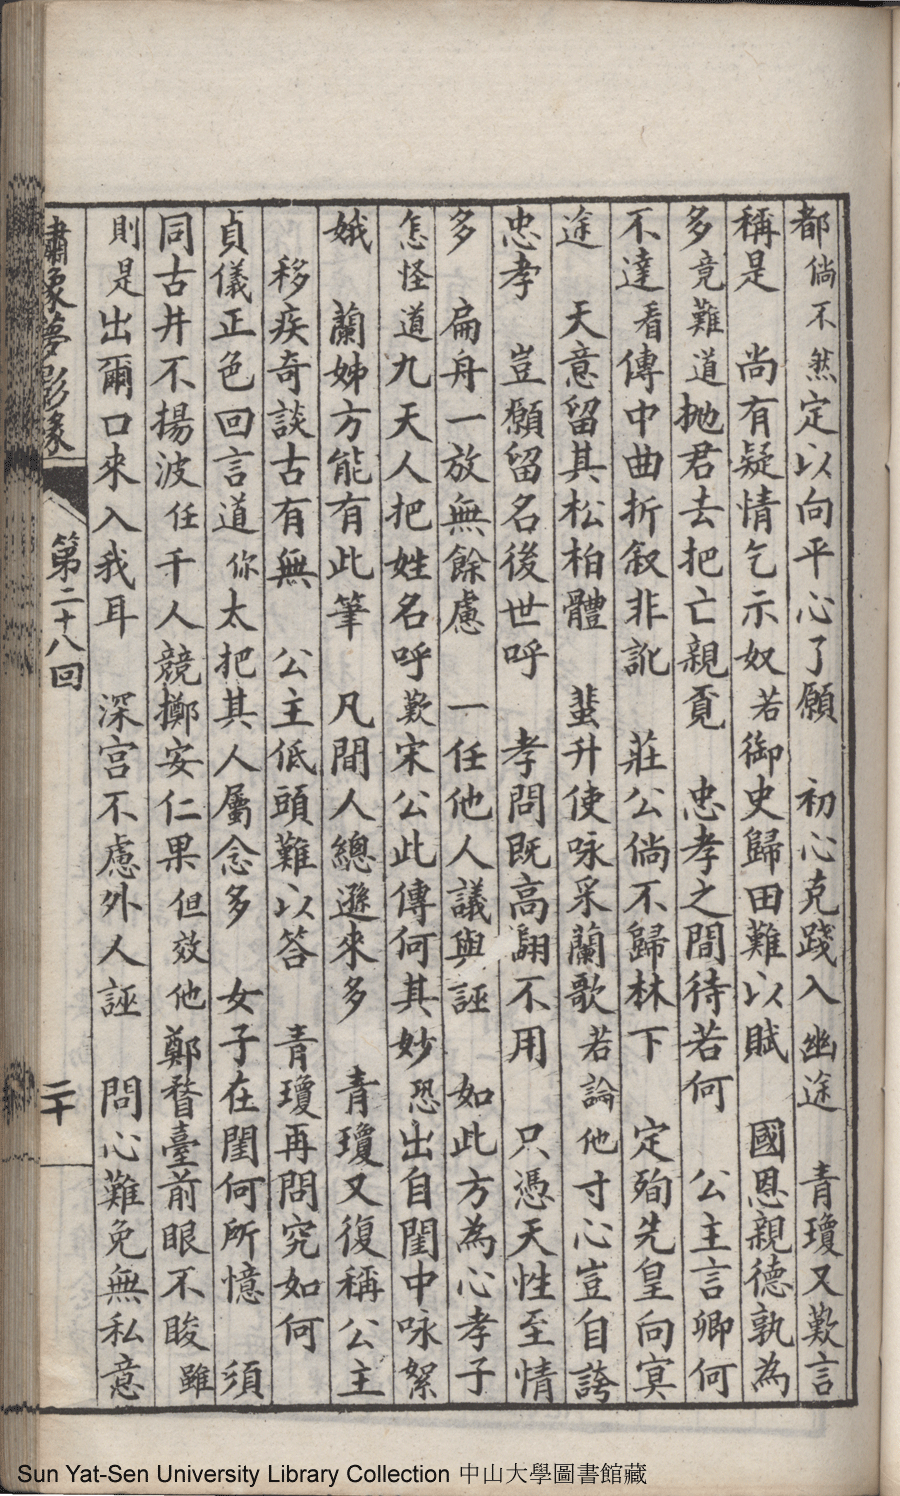 都倘不煞定以向平心了願　初心克踐入幽途　青瓊又歎言
稱是　尚有疑情乞示奴若御史歸田難以賦　國恩親德孰為
多竟難道拋君去把亡親覔　忠孝之間待若何　公主言卿何
不達看傳中曲折叙非訛　莊公倘不歸林下　定殉先皇向㝠
途　天意留其松柏體　蜚升使咏采蘭歌若論他寸心豈自誇
忠孝　豈願留名後世呼　孝問既高翻不用　只憑天性至情
多　扁舟一放無餘慮　一任他人議與誣　如此方為心孝子
怎怪道九天人把姓名呼歎宋公此傳何其妙恐出自閨中咏絮
娥　蘭姊方能有此筆　凡間人總遜來多　青瓊又復稱公主
移疾奇談古有無　公主低頭難以答　青瓊再問究如何
貞儀正色回言道你太把其人屬念多　女子在閨何所憶　須
同古井不揚波任千人競擲安仁果但效他鄭瞀臺前眼不睃雖
則是出爾口來入我耳　深宮不慮外人誣　問心難免無私意
第二十八回
二十
Sun Yat-Sen University Library Collection 中山大學圖書館藏